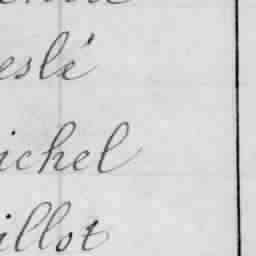 eslé
ichel
illot